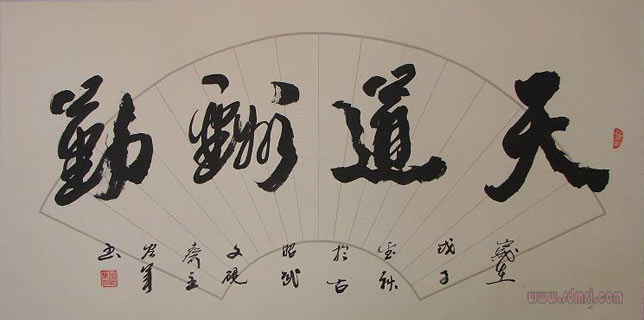 天道酬勤
歲在
戊子
金秋
於古
昭武
文硯
齋主
书
www.sdmsj.com